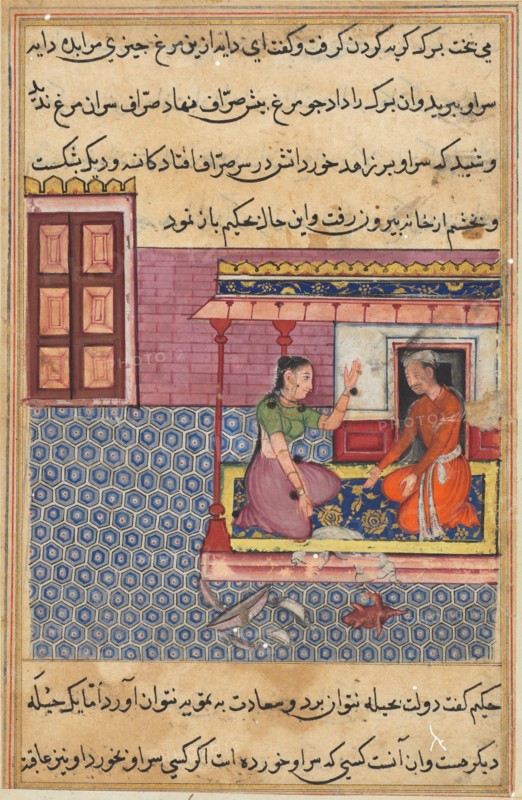 می‌پخت بزکه کربه کردن کرفت و کفت ای دایه ازین مرغ چیزی مرا بده دایه
سر او ببرید وان بزکه را داد جو مرغ پیش صرّاف نهاد صرّاف سر ان مرغ ندید
و شنید که سر او پسر زاهد خورد اتش در سر صرّاف افتاد کاسه و دیک بشکست
و بخشم از خانه بیرون رفت و این حال بحکیم باز نمود
حکیم کفت دولت بحیله نتوان برد و سعادت به تمویه نتوان آورد امّا یک حیله
دیکر هست وان آنست کسی که سر او خورده است اکر کسی سر او بخورد او نیز عاقبت